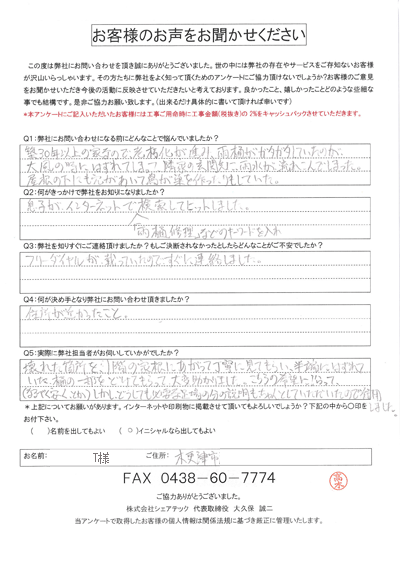 お客様のお声をお聞かせください
この度は弊社にお問い合わせを頂き誠にありがとうございました。世の中には弊社の存在やサービスをご存知ないお客様
が沢山いらっしゃいます。その方たちに弊社をよく知って頂くためのアンケートにご協力頂けないでしょうか?お客様のご意見
をお聞かせいただき今後の活動に反映させていきたいと考えております。良かったこと、嬉しかったことどのような些細な
事でも結構です。是非ご協力お願い致します。(出来るだけ具体的に書いて頂ければ幸いです)
*本アンケートにご記入いただいたお客様には工事ご用命時に工事金額(税抜き)の 2%をキャッシュバックさせていただきます。
Q1:弊社にお問い合わせになる前にどんなことで悩んでいましたか?
築30年以上の家なので老朽化が進み、雨樋がガタガタしていたのが、
大風の時にはずれてしまって、隣家の玄関先に雨水が流れこんでしまった。
屋根の下にも穴があいて鳥が巣を作ったりもしていた。
Q2:何がきっかけで弊社をお知りになりましたか?
息子がインターネットで検索してヒットしました。
雨樋修理などのキーワードを入れ
Q3:弊社を知りすぐにご連絡頂けましたか?もしご決断されなかったとしたらどんなことがご不安でしたか?
フリーダイヤルが載っていたのですぐに連絡しました。
Q4:何が決め手となり弊社にお問い合わせ頂きましたか?
住所が近かったこと。
Q5:実際に弊社担当者がお伺いしていかがでしたか?
壊れた箇所を、1階の屋根にあがって丁寧に見てもらい、早急に、はずれて
いた樋の一部をとりはずしてもらって、大変助かりました。こちらの希望に沿って、
*上記についてお願いがあります。インターネットや印刷物に掲載させて頂いてもよろしいでしょうか?下記の中から〇印を
お付下さい。
(　)名前を出してもよい　(〇)イニシャルなら出してもよい
お名前: T様 ご住所: 木更津市
FAX 0438-60-7774
ご協力ありがとうございました。
株式会社シェアテック 代表取締役 大久保 誠二
当アンケートで取得したお客様の個人情報は関係法規に基づき厳正に管理いたします。